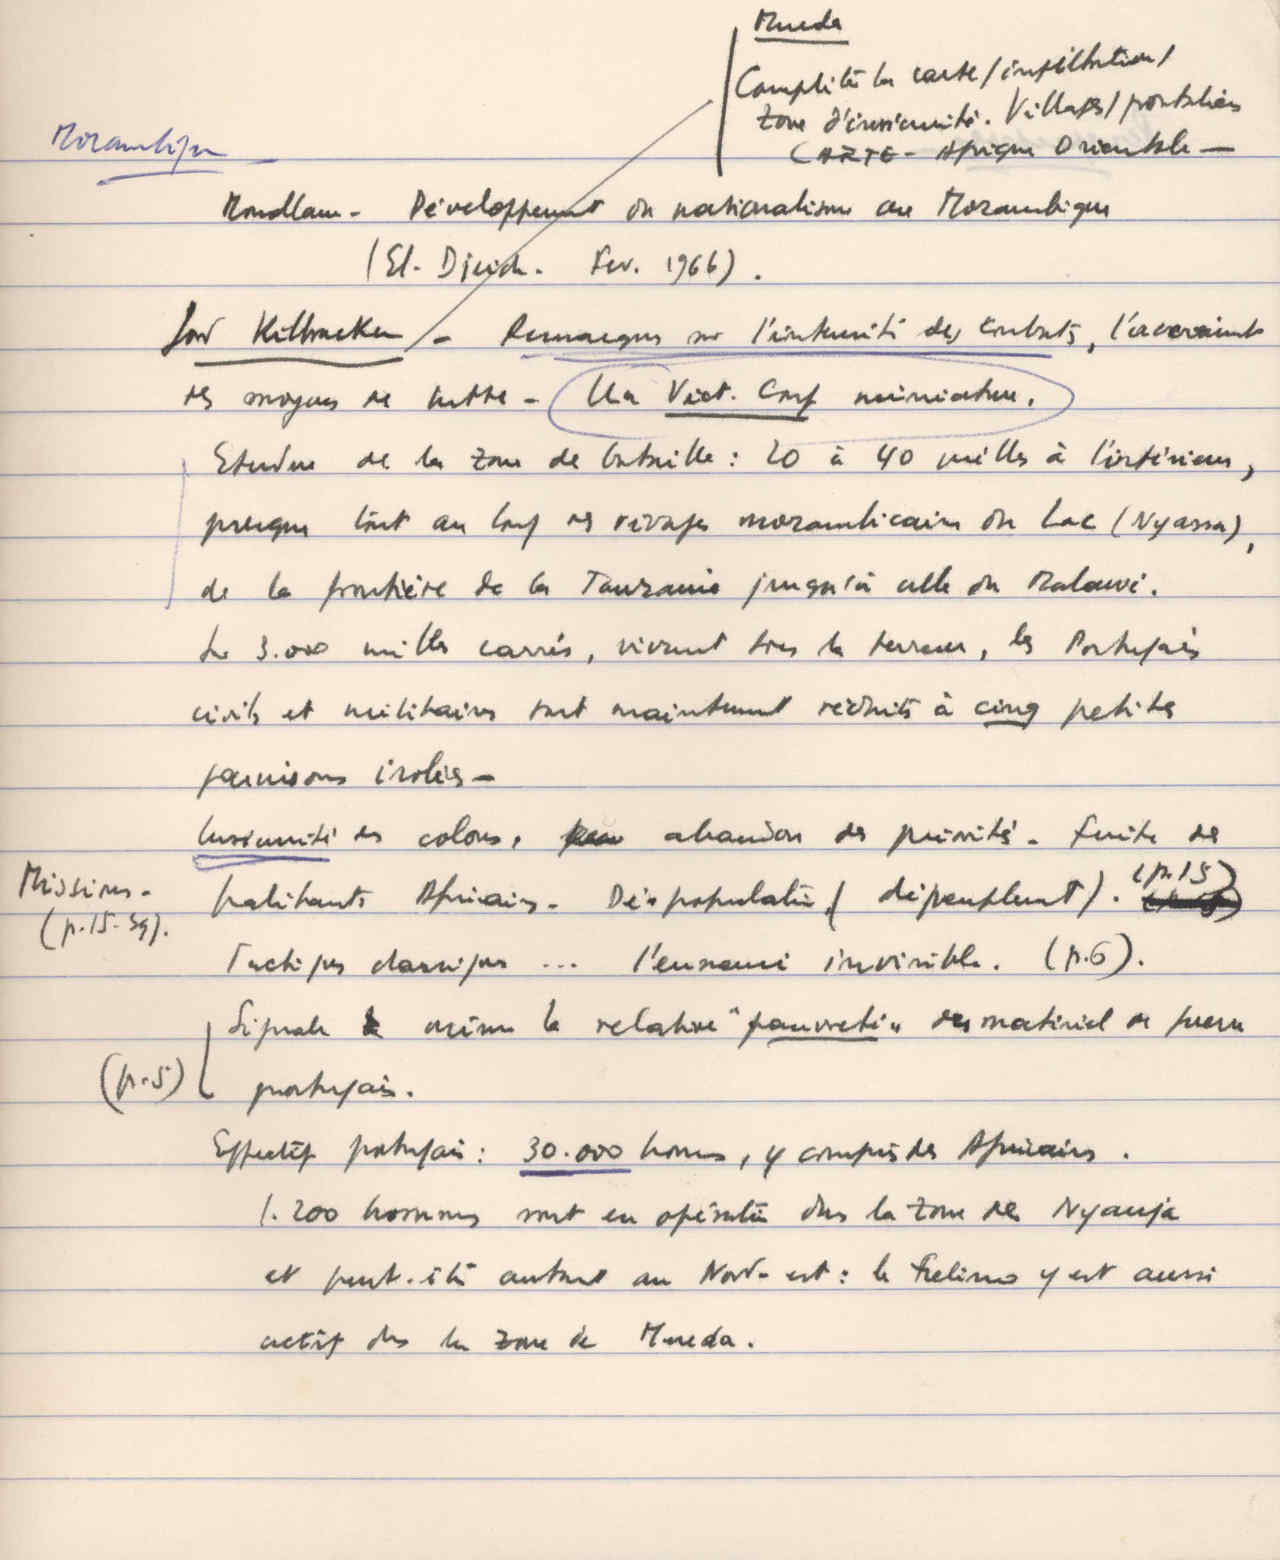 Mueda
Compléter la carte / infiltration /
zone d'insécurité. Villages / frontaliers
CARTE - Afrique Orientale —
Mozambique
Mondlane - Développement du nationalisme au Mozambique
(El. Djeich. Fev. 1966).
Lord Kilbracken - Remarques sur l'intensité des combats, l'
des moyens de lutte - Un Viet. Cong miniature.
Etendue de la zone de bataille : 20 à 40 milles à l'intérieur,
presque tout au long des rivages mozambicains du Lac (Nyassa),
de la frontière de la Tanzanie jusqu'à celle du Malawi.
3.000 milles carrés, vivant sous la terreur, les Portugais
civils et militaires sont maintenant réduits à cinq petites
garnisons isolées -
Insécurité des colons, abandon des priorités. Fuite des
habitants Africains. Dépopulation (dépeuplement). (p.15)
Missions -
(p.15-sq).
Tactiques classiques ... l'ennemi invisible. (p.6).
Signale même la relative "pauvreté" des matériel de guerre
(p.5)
portugais.
Effectif portugais : 30.000 hommes, y compris des Africains.
1.200 hommes sont en opération dans la zone des Nyanja
et peut-être autant au Nord-est : le Frelimo y est aussi
actif dans la zone de Mueda.